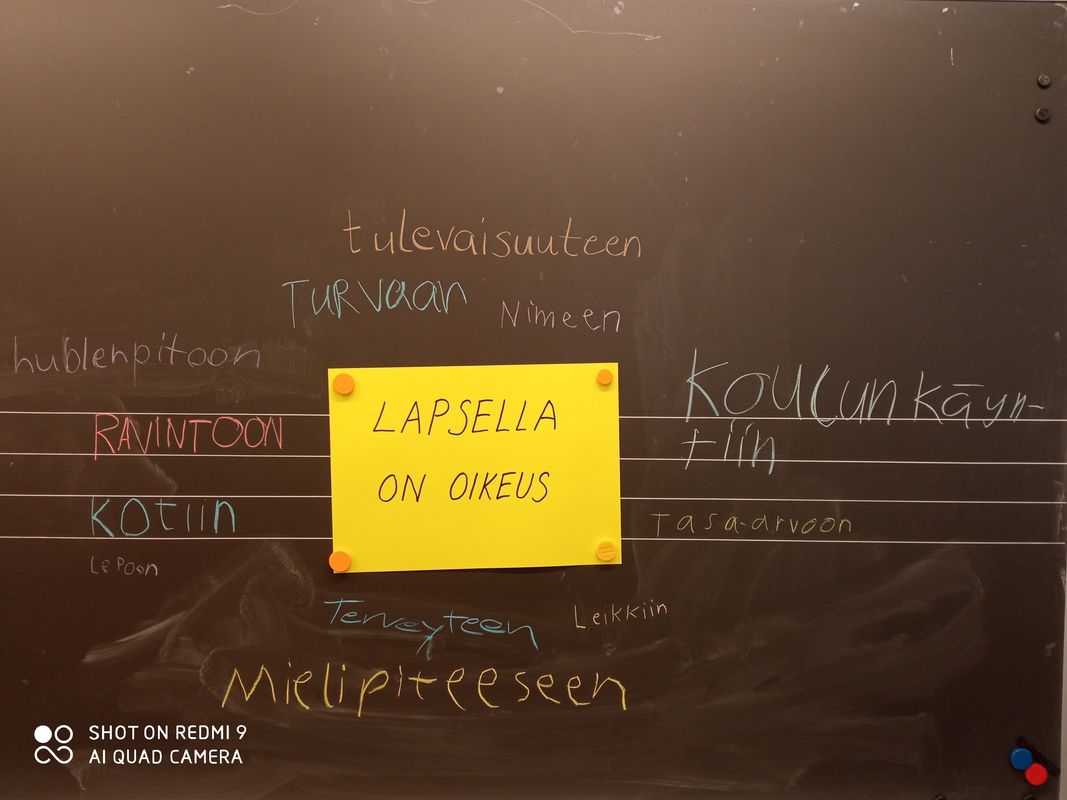 tulevaisuuteen
TURVaan
Nimeen
hublenpitoon
RAVINTOON
LAPSELLA
ON OIKEUS
KOULunkäyn-
tiin
KOtiin
Tasa-arvoon
LePoon
Terveyteen
Leikkiin
Mielipiteeseen
SHOT ON REDMI 9
AI QUAD CAMERA